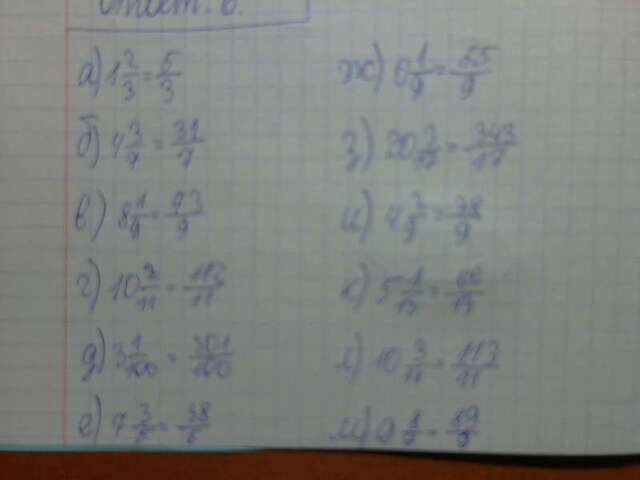 ответ: 6.
а) 1 2/3 = 5/3
б) 4 3/7 = 31/7
в) 8 1/9 = 73/9
г) 10 2/11 = 112/11
д) 3 1/100 = 301/100
е) 7 3/5 = 38/5
ж) 6 1/9 = 55/9
з) 20 3/17 = 343/17
и) 4 2/9 = 38/9
к)
л) 10 3/11 = 113/11
м)